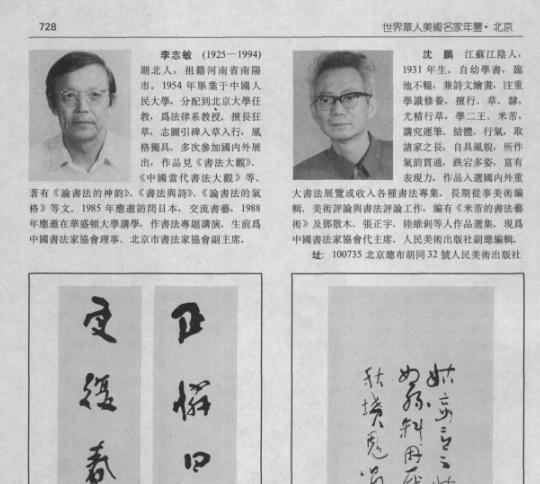 728
世界華人美術名家年鑒·北京
李志敏 (1925—1994)
湖北人，祖籍河南省南陽
市。1954 年畢業于中國人
民大學，分配到北京大學任
教，爲法律系教授，擅長狂
草，志圖引碑入草入行，風
格獨具，多次參加國内外展
出，作品見《書法大觀》、
《中國當代書法大觀》等，
著有《論書法的神韵》、《書法與詩》、《論書法的氣
格》等文。1985 年應邀訪問日本，交流書藝，1988
年應邀在華盛頓大學講學，作書法專題講演。生前爲
中國書法家協會理事、北京市書法家協會副主席。
沈 鵬 江蘇江陰人，
1931 年生。自幼學書，臨
池不輟，兼詩文繪畫，注重
學識修養，擅行、草、隸，
尤精行草，學二王、米芾，
講究運筆、結體、行氣，取
諸家之長，自具風貌，所作
氣韵貫通，跌宕多姿，富有
表現力。作品入選國内外重
大書法展覽或收入各種書法專集。長期從事美術編
輯、美術評論與書法評論工作，編有《米芾的書法藝
術》及鄧散木、張正宇、陸維釗等人作品選集，現爲
中國書法家協會代主席、人民美術出版社副總編輯。
址：100735 北京總布胡同 32 號人民美術出版社